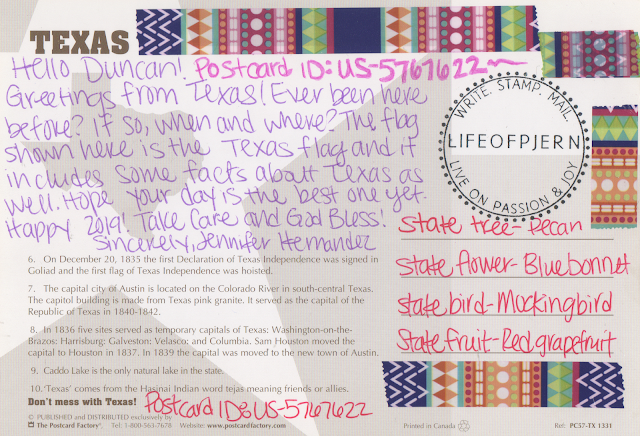 TEXAS
Hello Duncan! Postcard ID: US-5767622
Greetings from Texas! Ever been here
before? If so, when and where? The flag
shown here is the Texas flag and it
includes some facts about Texas as
well. Hope your day is the best one yet.
Happy 2019! Take Care and God Bless!
Sincerely, Jennifer Hernandez
WRITE. STAMP. MAIL.
LIFEOFPJERN
LIVE ON PASSION & JOY
State tree-Pecan
State flower-Bluebonnet
State bird-Mockingbird
State fruit-Red grapefruit
6. On December 20, 1835 the first Declaration of Texas Independence was signed in
Goliad and the first flag of Texas Independence was hoisted.
7. The capital city of Austin is located on the Colorado River in south-central Texas.
The capitol building is made from Texas pink granite. It served as the capital of the
Republic of Texas in 1840-1842.
8. In 1836 five sites served as temporary capitals of Texas: Washington-on-the-
Brazos: Harrisburg: Galveston: Velasco: and Columbia. Sam Houston moved the
capital to Houston in 1837. In 1839 the capital was moved to the new town of Austin.
9. Caddo Lake is the only natural lake in the state.
10. 'Texas' comes from the Hasinai Indian word tejas meaning friends or allies.
Don't mess with Texas! Postcard ID: US-5767622
© PUBLISHED and DISTRIBUTED exclusively by
The Postcard Factory. Tel: 1-800-563-7678 Website: www.postcardfactory.com
Printed in Canada
Ref: PC57-TX 1331